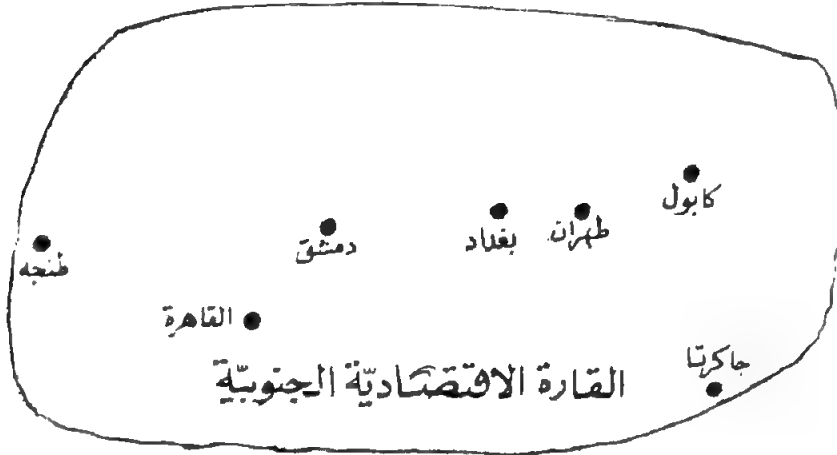 كابول
طهران
بغداد
دمشق
طنجه
القاهرة
جاكرتا
القارة الاقتصاديّة الجنوبيّة